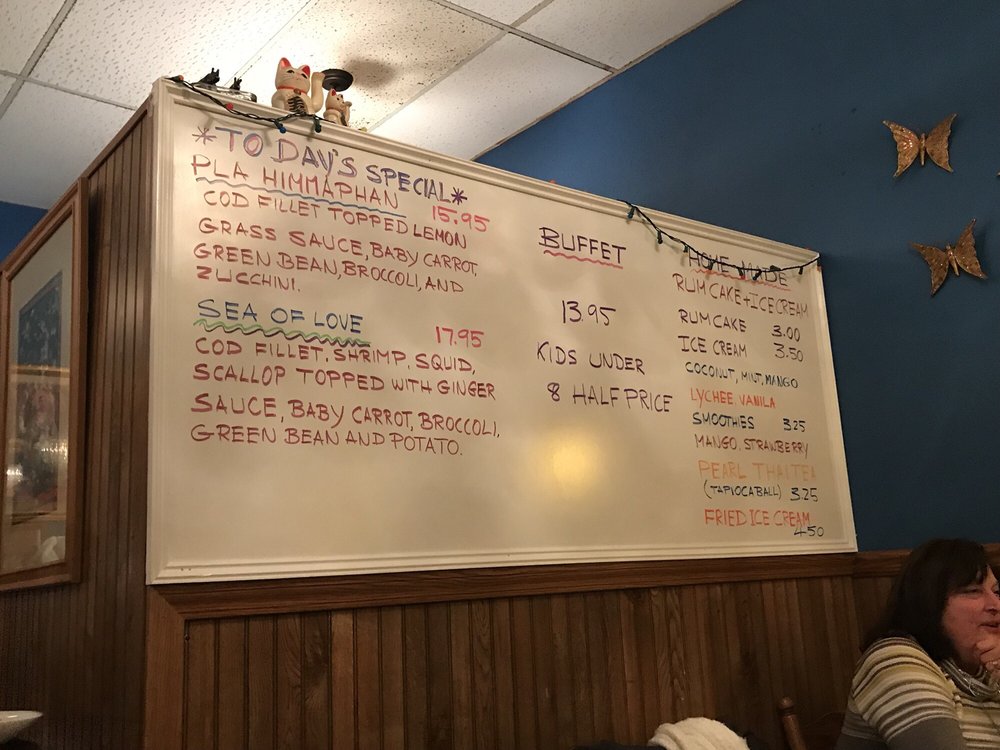 *TODAY'S SPECIAL*
PLA HIMMAPHAN 15.95
COD FILLET TOPPED LEMON
GRASS SAUCE, BABY CARROT,
GREEN BEAN, BROCCOLI, AND
ZUCCHINI.
SEA OF LOVE 17.95
COD FILLET, SHRIMP, SQUID,
SCALLOP TOPPED WITH GINGER
SAUCE, BABY CARROT, BROCCOLI,
GREEN BEAN AND POTATO.
BUFFET
13.95
KIDS UNDER
8 HALF PRICE
HOME MADE
RUM CAKE + ICE CREAM
RUM CAKE 3.00
ICE CREAM 3.50
COCONUT, MINT, MANGO
LYCHEE, VANILA
SMOOTHIES 3.25
MANGO, STRAWBERRY
PEARL THAI TEA
(TAPIOCA BALL) 3.25
FRIED ICE CREAM
4.50